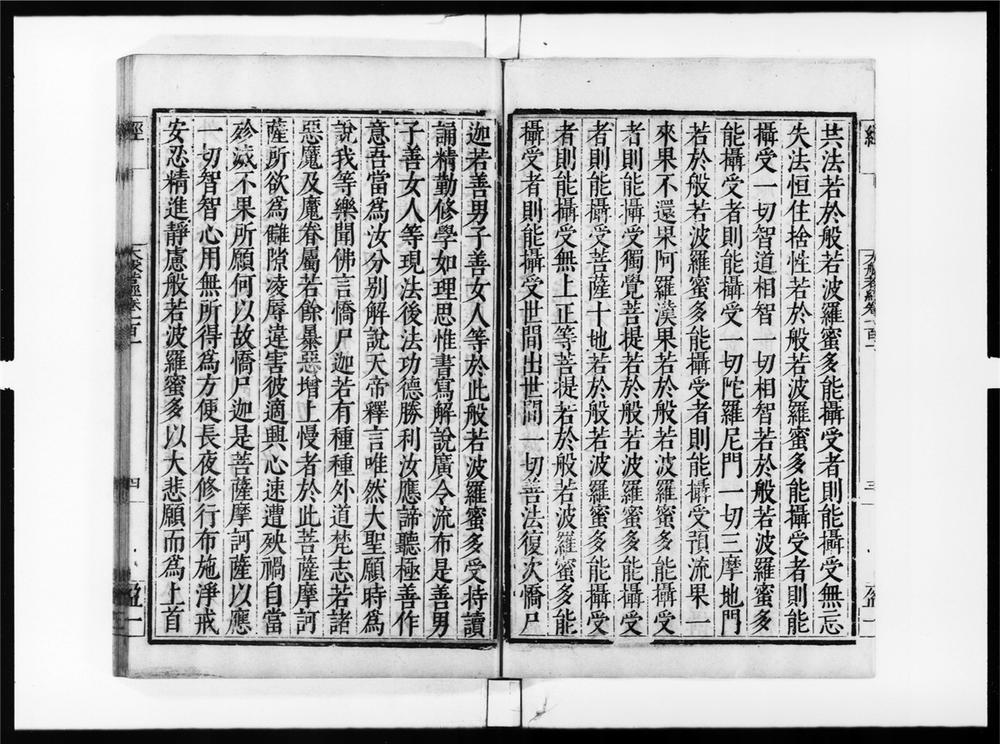 共法若於般若波羅蜜多能攝受者則能攝受無忘
失法恒住捨性若於般若波羅蜜多能攝受者則能
攝受一切智道相智一切相智若於般若波羅蜜多
能攝受者則能攝受一切陀羅尼門一切三摩地門
若於般若波羅蜜多能攝受者則能攝受預流果一
來果不還果阿羅漢果若於般若波羅蜜多能攝受
者則能攝受獨覺菩提若於般若波羅蜜多能攝受
者則能攝受菩薩十地若於般若波羅蜜多能攝受
者則能攝受無上正等菩提若於般若波羅蜜多能
攝受者則能攝受世間出世間一切善法復次憍尸
大般若經卷一百一
三
盈一
迦若善男子善女人等於此般若波羅蜜多受持讀
誦精勤修學如理思惟書寫解說廣令流布是善男
子善女人等現法後法功德勝利汝應諦聽極善作
意吾當爲汝分别解說天帝釋言唯然大聖願時爲
說我等樂聞佛言憍尸迦若有種種外道梵志若諸
惡魔及魔眷屬若餘暴惡增上慢者於此菩薩摩訶
薩所欲爲讎隙凌辱違害彼適興心速遭殃禍自當
殄滅不果所願何以故憍尸迦是菩薩摩訶薩以應
一切智智心用無所得爲方便長夜修行布施淨戒
安忍精進靜慮般若波羅蜜多以大悲願而爲上首
經
大般若經卷一百一
四
盈一